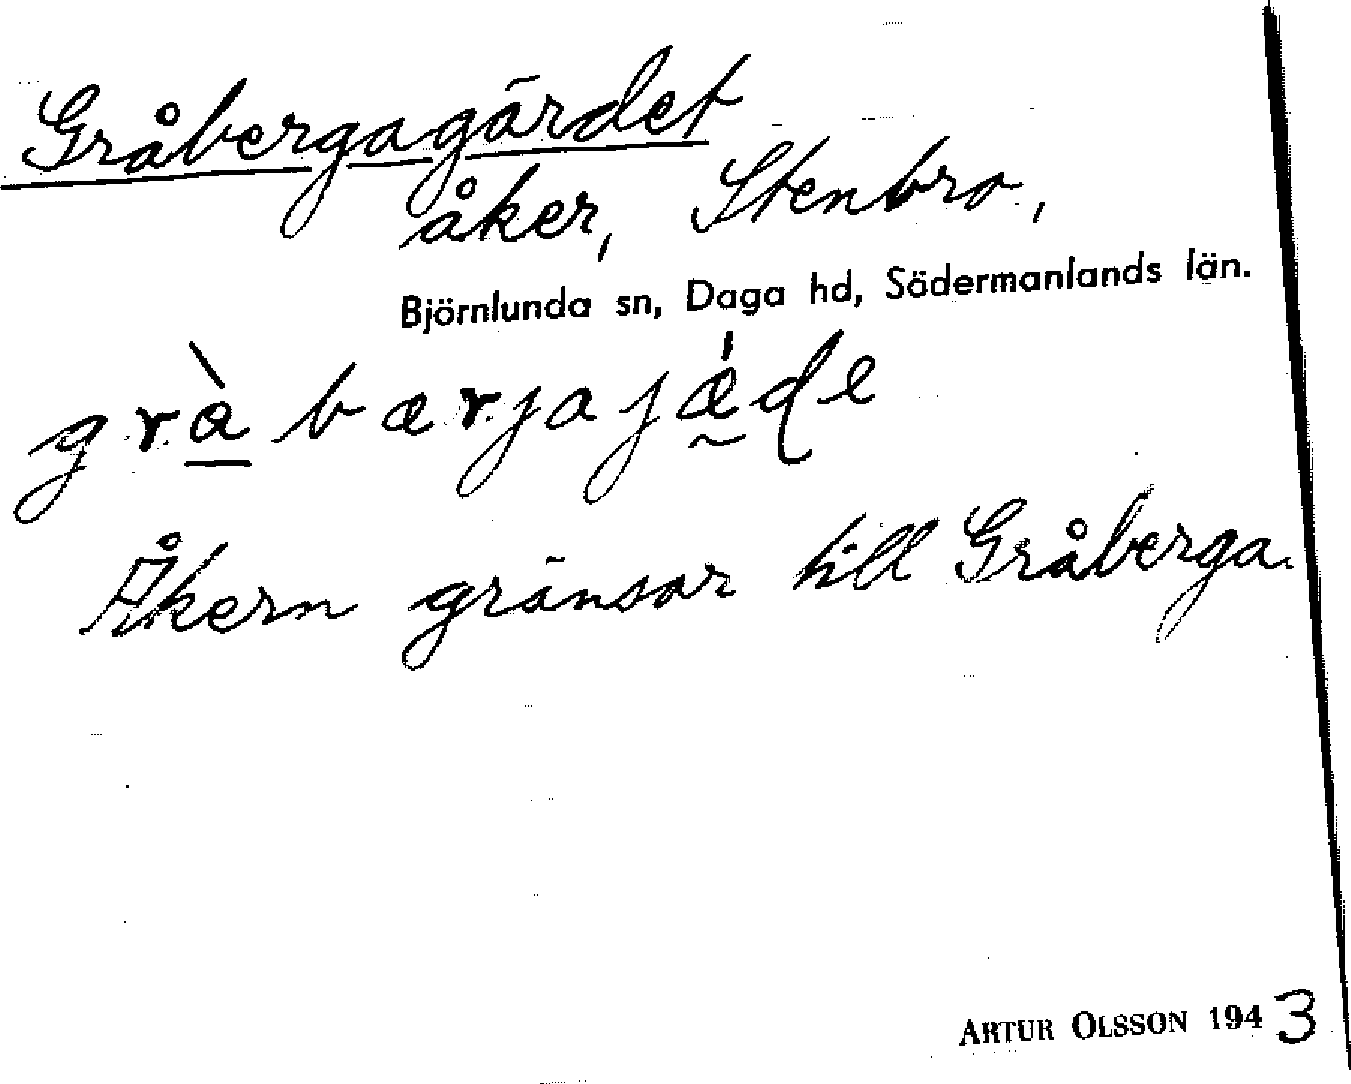 Gråbergagärdet
åker, Stenbro,
Björnlunda sn, Daga hd, Södermanlands län.
gràbærjajǽde
Åkern gränsar till Gråberga.
ARTUR OLSSON 1943